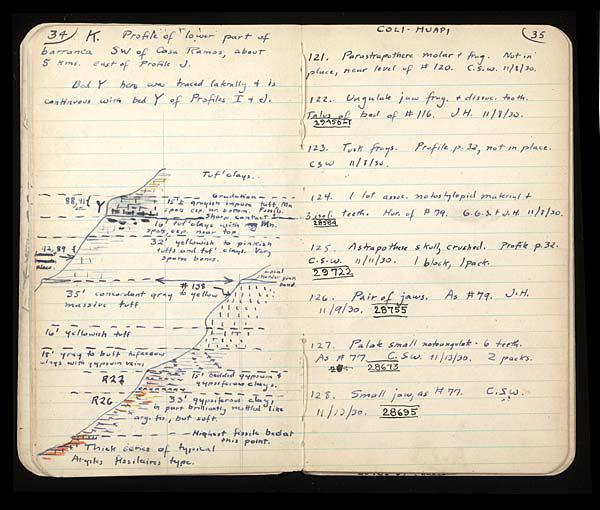 34
K. Profile of lower part of
barranca SW of Casa Ramos, about
5 kms. east of Profile J.
Bed Y here was traced laterally & is
continuous with bed Y of Profiles I & J.
Tuf' clays.
Gradation
88, 91
Y
15'± grayish impure tuff, Mn
spots esp. nr. bottom. Fossils.
Sharp contact
16' tuf' clays with Mn.
spots, esp. near top
92, 89
place.
32' yellowish to pinkish
tuffs and tuf' clays. Very
sparse bones.
local
harder pink
band.
#138
35' concordant gray to yellow
massive tuff
16' yellowish tuff
18' gray to buff tufaceous
clays with gypsum veins
R27
15' bedded gypsum &
gypsiferous clays.
R26
33' gypsiferous clays
in part brilliantly mottled like
arg. fis., but soft.
Highest fissile bed at
this point.
Thick series of typical
Argiles fissilaires type.
COLI-HUAPI
35
121. Parastrapothere molar & frag. Not in
place, near level of #120. C.S.W. 11/8/30.
122. Ungulate jaw frag. & dissoc. teeth.
Talus of bed of #116. J.H. 11/8/30.
123. Tusk frags. Profile p. 32, not in place.
CSW 11/8/30.
124. 1 lot assoc. notostylopid material &
3 isol. teeth. Hor. of #79. G.G.S. & J.H. 11/8/30.
28584
125. Astrapothere skull, crushed. Profile p. 32.
C.S.W. 11/11/30. 1 block, 1 pack.
29722
126. Pair of jaws. As #79. J.H.
11/9/30. 28755
127. Palate small notoungulate. 6 teeth.
As #77 C.S.W. 11/13/30. 2 packs.
28673
128. Small jaw, as #77. C.S.W.
11/13/30. 28695